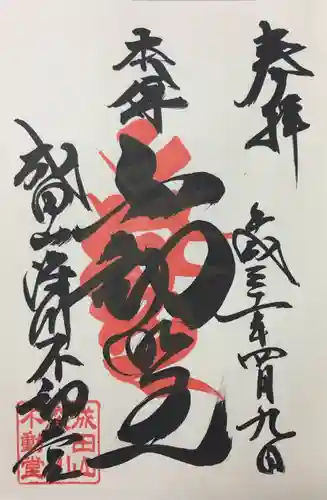 奉拝
平成三十一年四月九日
本尊
不動明王
成田山深川不動堂
成田山
不動堂